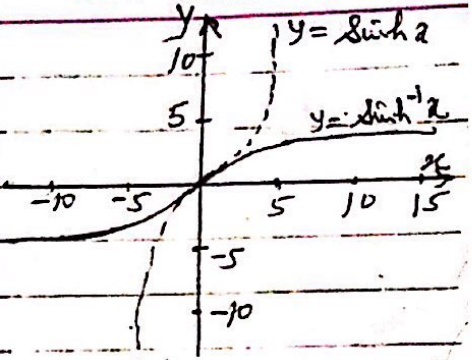 y
y = Sinh x
10
5
y = Sinh⁻¹x
x
-10 -5 5 10 15
-5
-10